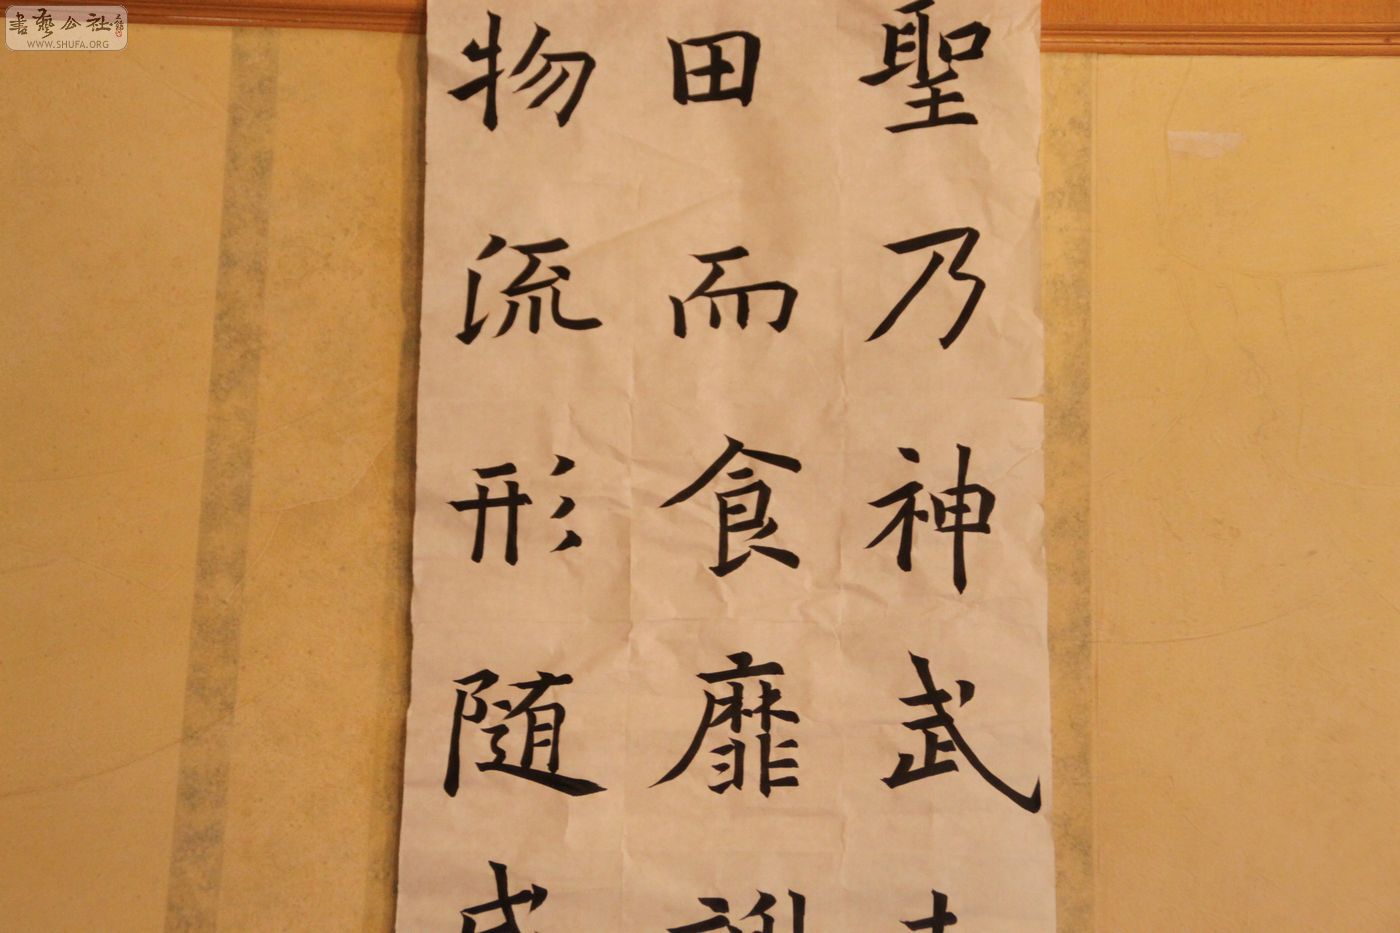 聖乃神武
田而食靡
物流形随
書藝公社
WWW.SHUFA.ORG